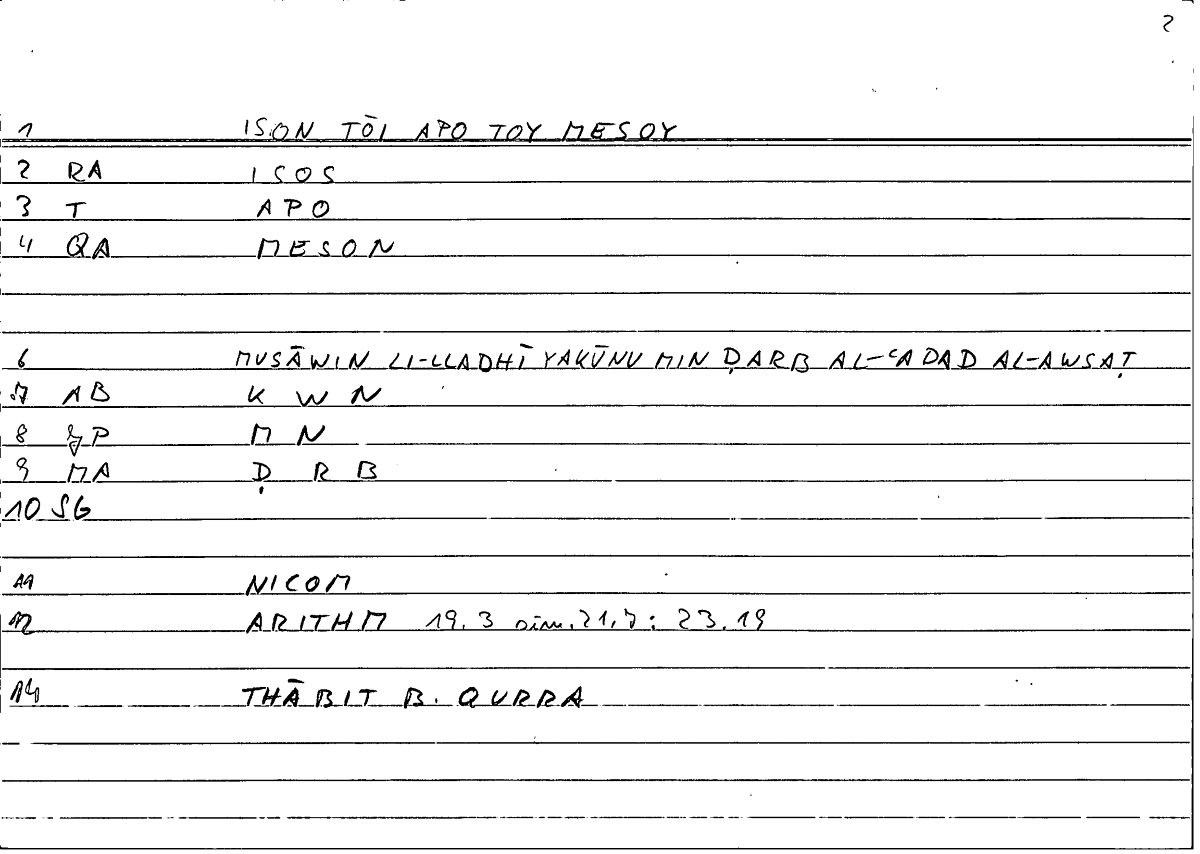 2
1 ISON TŌI APO TOY MESOY
2 RA ISOS
3 T APO
4 QA MESON
6 MUSĀWIN LI-LLADHĪ YAKŪNU MIN ḌARB AL-ʿADAD AL-AWSAṬ
7 AB K W N
8 P M N
9 MA Ḍ R B
10 SG
11 NICOM
12 ARITHM 19.3 sim. 21,7: 23.19
14 THĀBIT B. QURRA